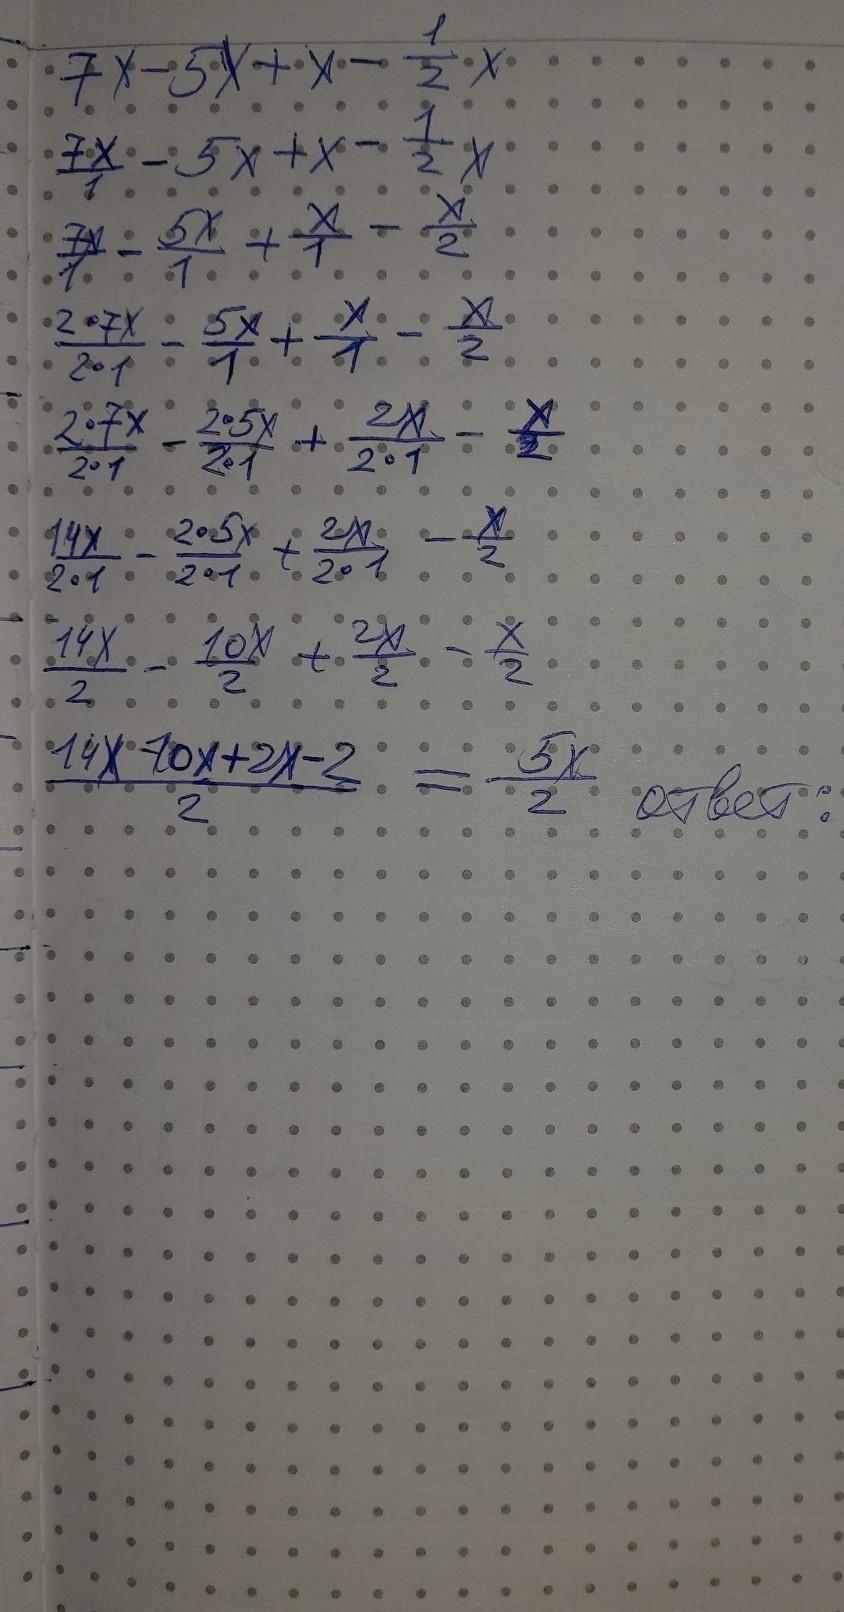 7x - 5x + x - 1/2 x
7x/1 - 5x + x - 1/2 x
7x/1 - 5x/1 + x/1 - x/2
2•7x/2•1 - 5x/1 + x/1 - x/2
2•7x/2•1 - 2•5x/2•1 + 2x/2•1 - x/2
14x/2•1 - 2•5x/2•1 + 2x/2•1 - x/2
14x/2 - 10x/2 + 2x/2 - x/2
14x-10x+2x-2/2 = 5x/2 ответ: